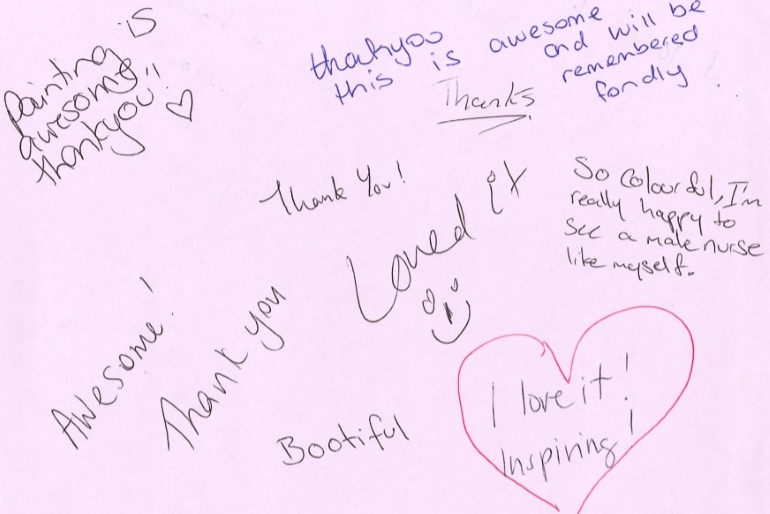 painting is
awesome
thankyou!!
thankyou
this is awesome
and will be
remembered
fondly.
Thanks
Thank You!
Loved it
So colourful, I'm
really happy to
see a male nurse
like myself.
Awesome!
Thank you
Bootiful
I love it!
Inspiring!